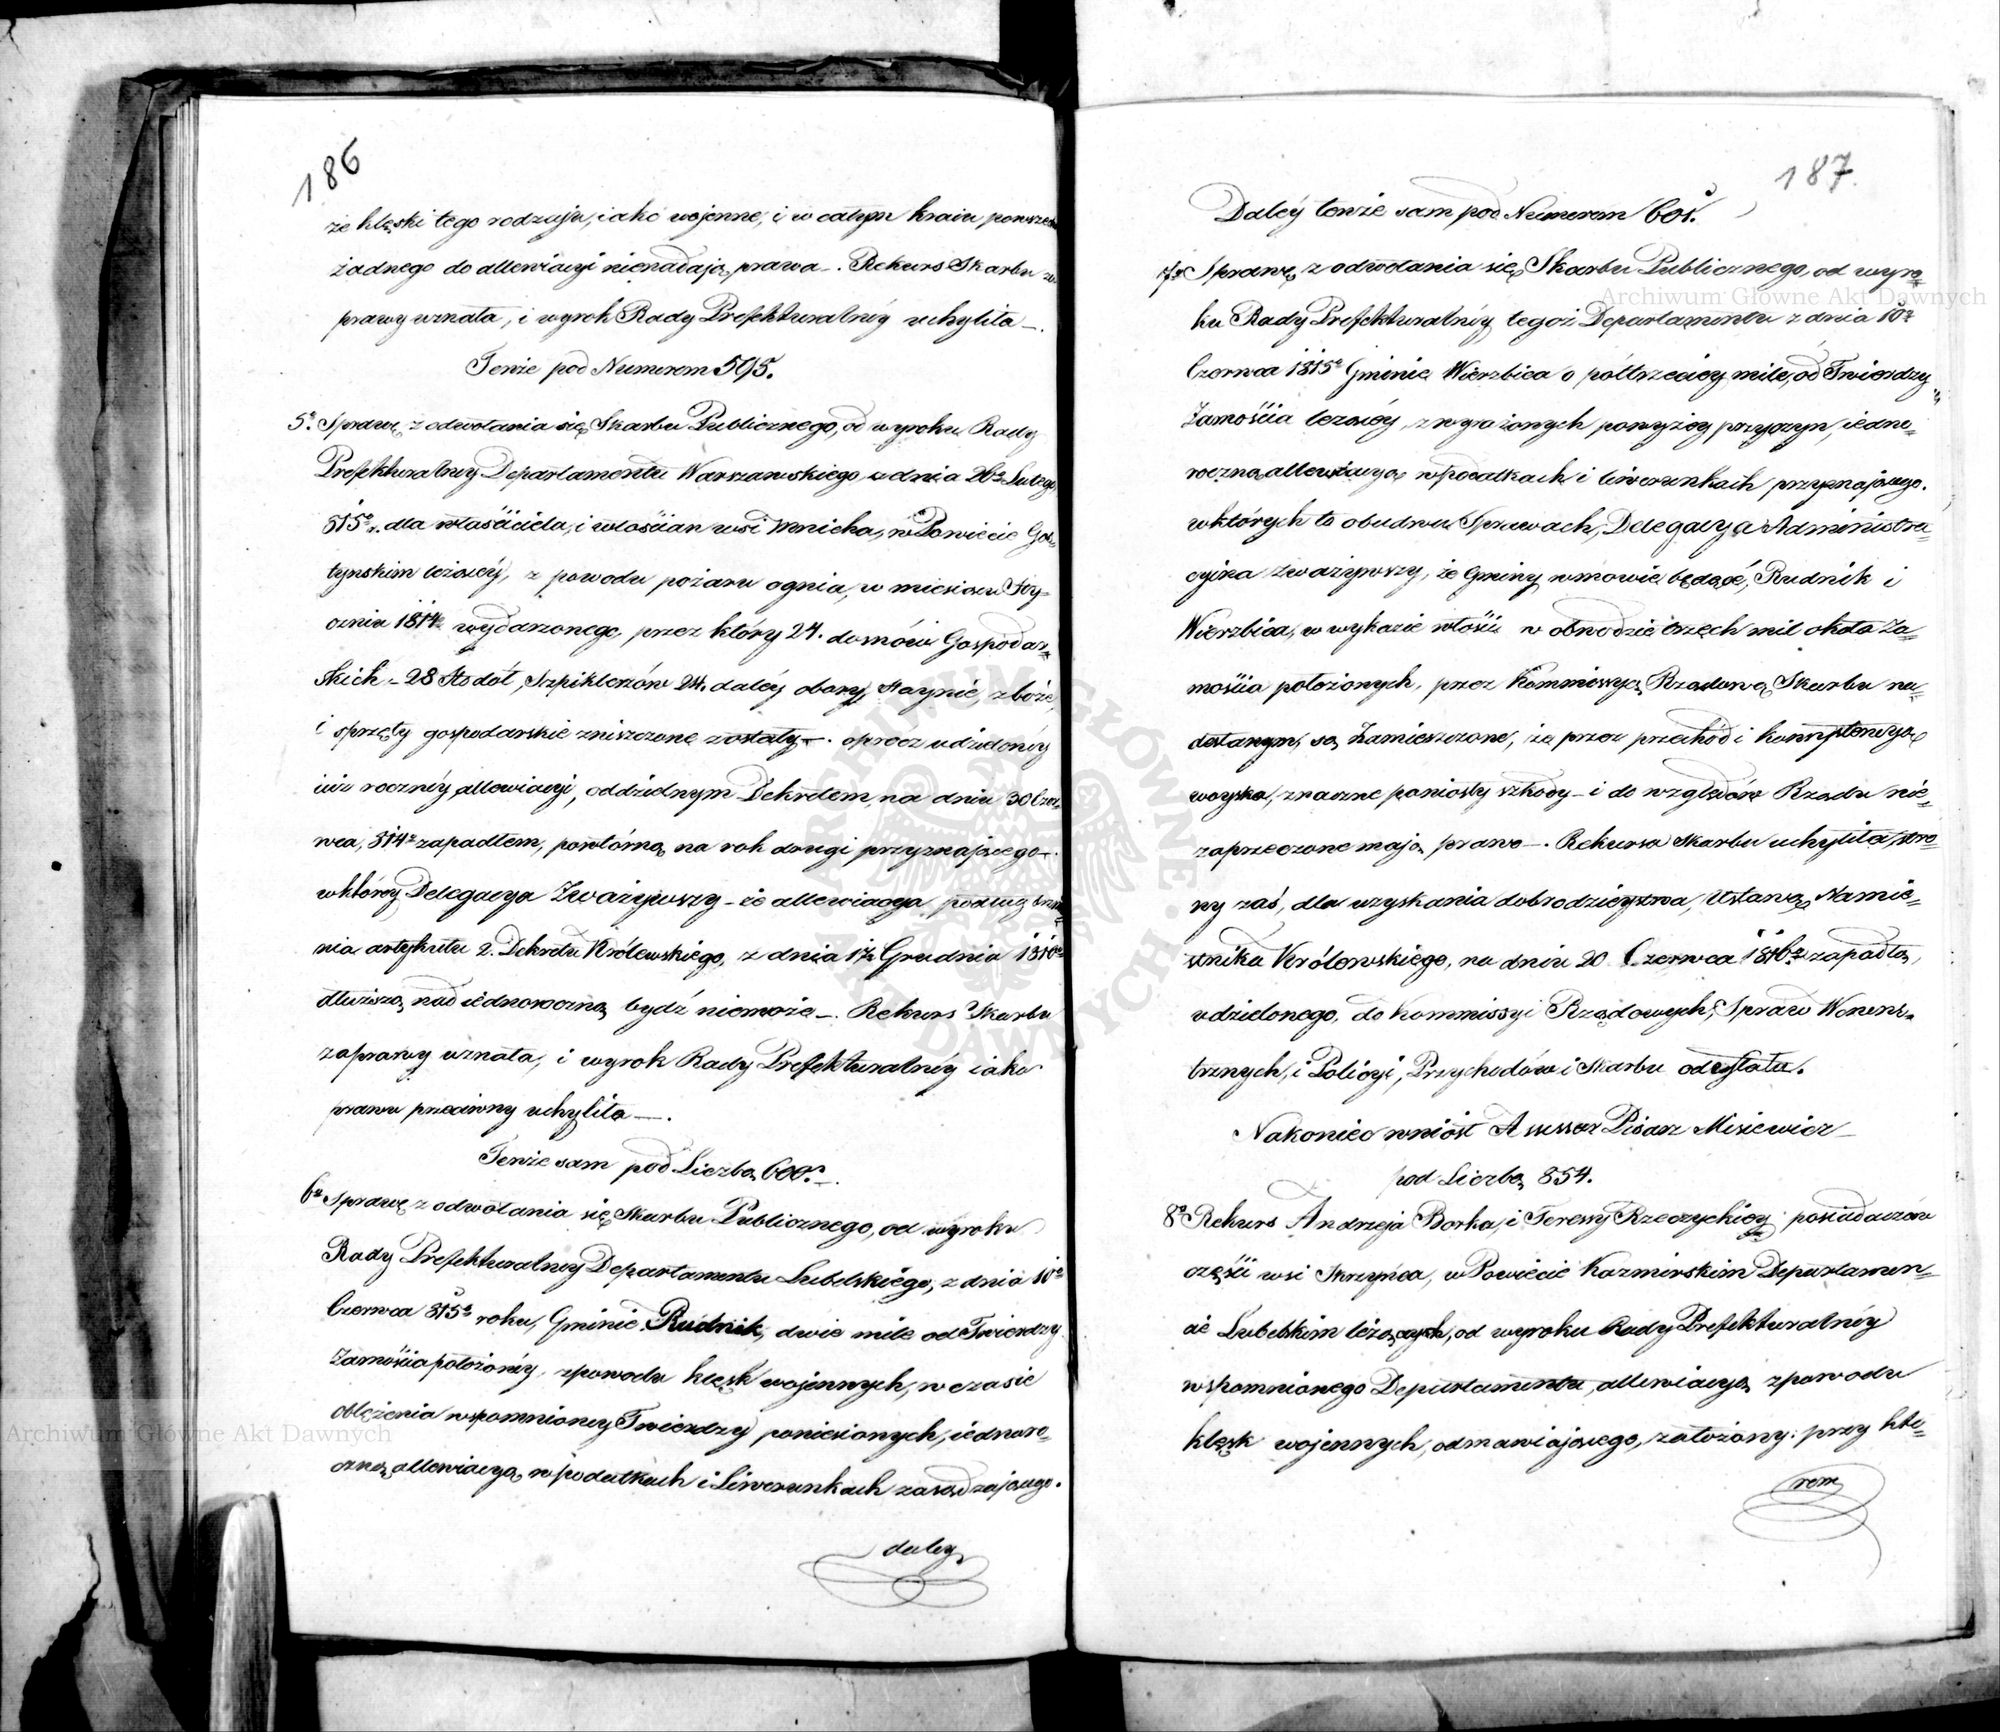 186
że klęski tego rodzaju, iako wojenne, i w całym kraiu powszechne
żadnego do allewiacyi nienadają prawa —. Rekurs Skarbu za
prawy uznała, i wyrok Rady Prefekturalnéy uchyliła —.
Tenże pod Numerem 595.
5º. Sprawę z odwołania się Skarbu Publicznego, od wyroku Rady
Prefekturalney Departamentu Warszawskiego z dnia 26º Lutego
815º r. dla właściciela, i włościan wsi Mnicha, w Powiecie Gos=
tyńskim leżącéy, z powodu pożaru ognia, w miesiącu Sty=
czniu 1814º wydarzonego, przez który 24. domów Gospodar=
skich – 28 Stodół, Szpiklerzów 24. daléy obory, staynie, zboże,
i sprzęty gospodarskie zniszczone zostały —. oprócz udzielonéy
iuż rocznéy allewiacyi, oddzielnym Dekretem na dniu 30 Czer=
wca, 814º zapadłem, powtórną na rok drugi przyznającego —.
w któréy Delegacya Zważywszy – że allewiacya podług brzmie=
nia artykułu 2. Dekretu Królewskiego, z dnia 17º Grudnia 1810º
dłuższą nad iednoroczną bydź niemoże —. Rekurs Skarbu
za prawy uznała, i wyrok Rady Prefekturalnéy iako
prawu przeciwny uchyliła —.
Tenże sam pod Liczbą 600. —.
6º Sprawę z odwołania się Skarbu Publicznego, od wyroku
Rady Prefekturalney Departamentu Lubelskiego, z dnia 10º
Czerwca 815º roku, Gminie Rudnik, dwie mile od Twierdzy
Zamościa położonéy, z powodu klęsk wojennych, w czasie
oblężenia wspomnioney Twierdzy poniesionych, iednoro=
czną allewiacyą w podatkach i Liwerunkach zasądzającego.
daley
187.
Daléy tenże sam pod Numerem 601.
7º Sprawę z odwołania się Skarbu Publicznego, od wyro=
ku Rady Prefekturalnéy tegoż Departamentu z dnia 10º
Czerwca 1815º Gminie Wierzbica o półtrzeciey mile, od Twierdzy
Zamościa leżącéy, z wyrażonych powyżéy przyczyn, iedno=
roczną allewiacyą w podatkach i liwerunkach przyznającego.
w których to obudwu Sprawach, Delegacya Administra=
cyjna zważywszy, że Gminy w mowie będące, Rudnik i
Wierzbica, w wykazie włości w obwodzie trzech mil około Za=
mościa położonych, przez Kommissyą Rządową Skarbu na=
desłanym, są zamieszczone, że przez przechód i konsystencyą
woyska, znaczne poniosły szkody – i do względów Rządu nie=
zaprzeczone mają prawo —. Rekursa Skarbu uchyliła, stro=
ny zaś, dla uzyskania dobrodzieystwa, Ustawą Namie=
stnika Królewskiego, na dniu 20 Czerwca 1816º zapadłą,
udzielonego, do Kommissyi Rządowych, Spraw Wewnę=
trznych, i Policyi, Przychodów i Skarbu odesłała.
Nakoniec wniósł Assessor Pisarz Misiewicz —
pod Liczbą 854.
8º Rekurs Andrzeja Borka, i Teressy Rzeczyckiéy posiadaczów
części wsi Skrzyńca, w Powiecie Kazmirskim Departamen=
cie Lubelskim leżących, od wyroku Rady Prefekturalnéy
wspomnionego Departamentu, allewiacyą z powodu
klęsk wojennych, odmawiającego, założony: przy któ=
rem
Archiwum Główne Akt Dawnych
Archiwum Główne Akt Dawnych
ARCHIWUM GŁÓWNE AKT DAWNYCH